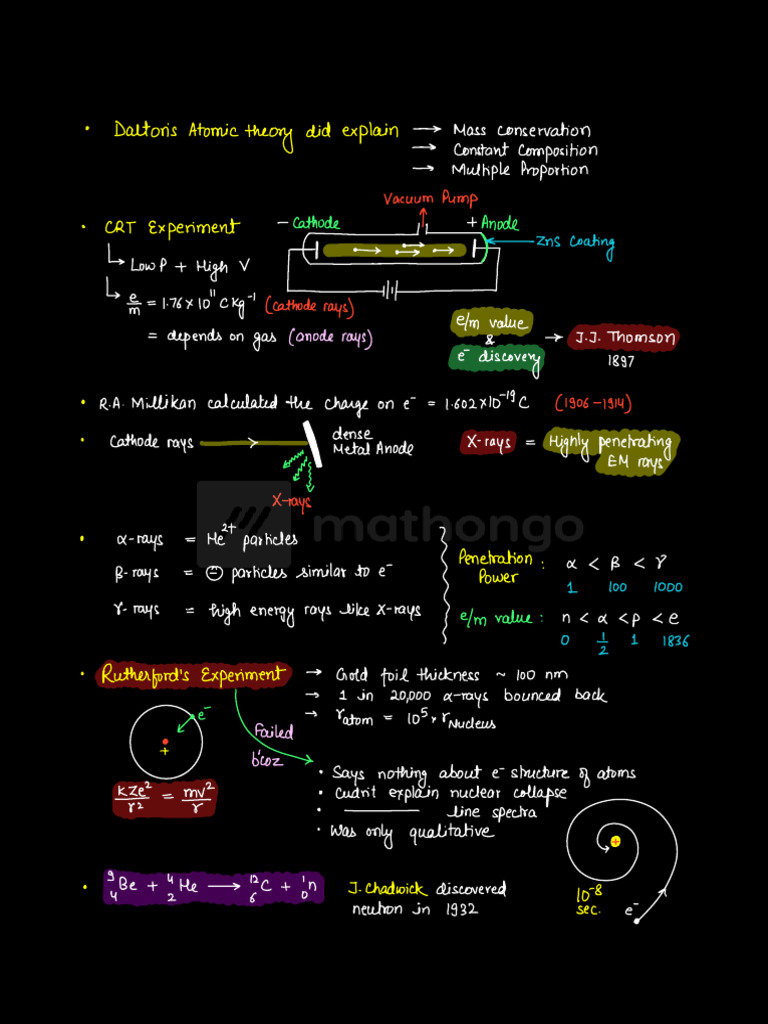 • Dalton's Atomic theory did explain → Mass conservation
→ Constant Composition
→ Multiple Proportion
Vacuum Pump
• CRT Experiment
− Cathode
+ Anode
ZnS Coating
Low P + High V
e/m = 1.76 × 10¹¹ C kg⁻¹ (cathode rays)
= depends on gas (anode rays)
e/m value
&
e⁻ discovery
→ J.J. Thomson
1897
• R.A. Millikan calculated the charge on e⁻ = 1.602×10⁻¹⁹ C (1906–1914)
• Cathode rays
dense
Metal Anode
X-rays
X-rays = Highly penetrating
EM rays
mathongo
• α-rays = He²⁺ particles
β-rays = ⊖ particles similar to e⁻
γ-rays = high energy rays like X-rays
Penetration
Power : α < β < γ
1 100 1000
e/m value : n < α < p < e
0 1/2 1 1836
• Rutherford's Experiment → Gold foil thickness ~ 100 nm
→ 1 in 20,000 α-rays bounced back
→ r_atom = 10⁵ × r_Nucleus
e⁻
+
Failed
b'coz
kZe²/r² = mv²/r
• Says nothing about e⁻ structure of atoms
• Cudn't explain nuclear collapse
• ———— line spectra
• Was only qualitative
+
10⁻⁸
sec.
e⁻
• ⁹₄Be + ⁴₂He → ¹²₆C + ¹₀n
J. Chadwick discovered
neutron in 1932